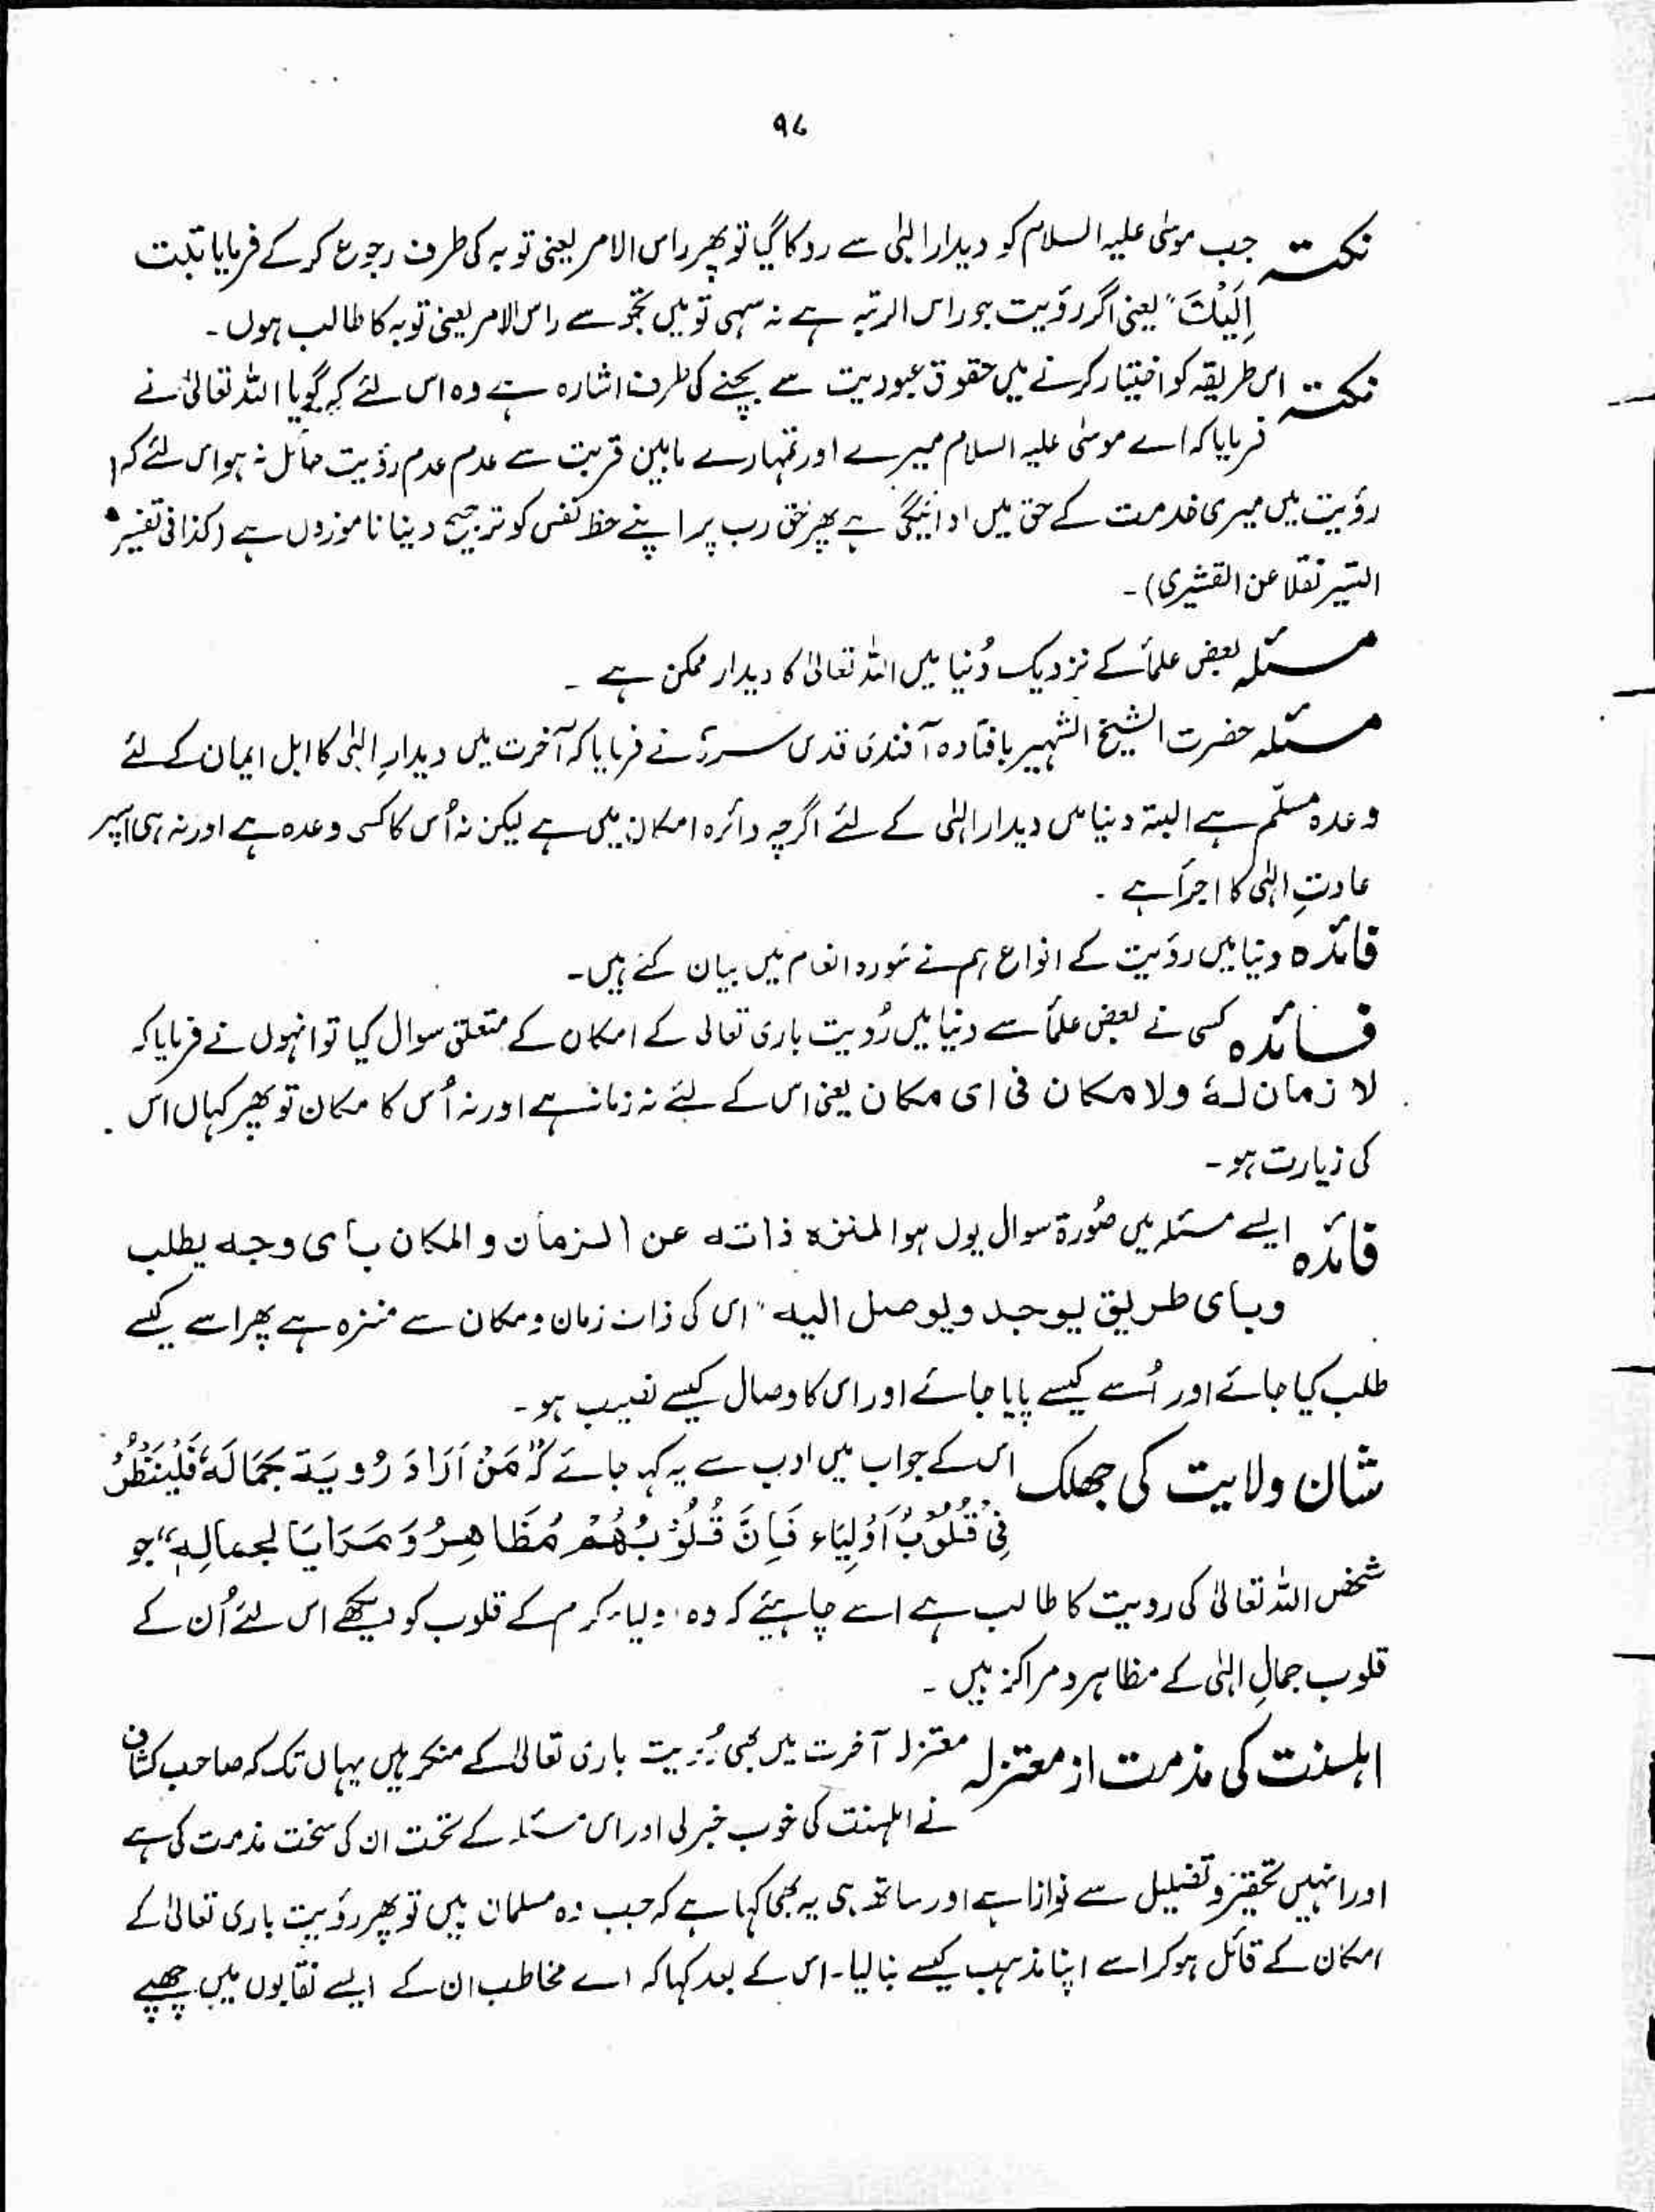 ۹۷
نکتہ جب موسیٰ علیہ السلام کو دیدار الٰہی سے روکا گیا تو پھر راس الامر یعنی توبہ کی طرف رجوع کر کے فرمایا تبت
اِلَیْکَ" یعنی اگر رؤیت جو راس الرتبہ ہے نہ سہی تو میں تجھ سے راس الامر یعنی توبہ کا طالب ہوں۔
نکتہ اس طریقہ کو اختیار کرنے میں حقوق عبودیت سے بچنے کی طرف اشارہ ہے وہ اس لئے کہ گویا اللہ تعالیٰ نے
فرمایا کہ اے موسیٰ علیہ السلام میرے اور تمہارے مابین قربت سے عدم عدم رؤیت حائل نہ ہو اس لئے کہ
رؤیت میں میری خدمت کے حق میں ادائیگی ہے پھر حق رب پر اپنے حظ نفس کو ترجیح دینا ناموزوں ہے (کذا فی تفسیر
التیسیر نقلا عن القشیری)۔
مسئلہ بعض علمأ کے نزدیک دُنیا میں اللہ تعالیٰ کا دیدار ممکن ہے ۔
مسئلہ حضرت الشیخ الشہیر بافتادہ آفندی قدس سرہٗ نے فرمایا کہ آخرت میں دیدارِ الٰہی کا اہل ایمان کے لئے
وعدہ مسلّم ہے البتہ دنیا میں دیدار الٰہی کے لئے اگرچہ دائرہ امکان میں ہے لیکن نہ اُس کا کسی وعدہ ہے اور نہ ہی اسپر
عادتِ الٰہی کا اجرأ ہے ۔
فائدہ دنیا میں رؤیت کے انواع ہم نے سُورہ انعام میں بیان کئے ہیں۔
فائدہ کسی نے بعض علمأ سے دنیا میں رُویت باری تعالی کے امکان کے متعلق سوال کیا تو انہوں نے فرمایا کہ
لا زمان لہٗ ولا مکان فی ای مکان یعنی اس کے لئے نہ زمانہ ہے اور نہ اُس کا مکان تو پھر کہاں اس
کی زیارت ہو۔
فائدہ ایسے مسئلہ میں صُورۃ سوال یوں ہوا المنزہ ذاتہ عن الزمان والمکان بأی وجہ یطلب
وبای طریق یوجد ویوصل الیہ" اس کی ذات زمان ومکان سے منزہ ہے پھر اسے کیسے
طلب کیا جائے اور اُسے کیسے پایا جائے اور اس کا وصال کیسے نصیب ہو۔
شان ولایت کی جھلک اس کے جواب میں ادب سے یہ کہہ جائے کہ "مَنْ اَرَادَ رُویَۃ جَمَالَہٗ فَلْیَنْظُرُ
فِیْ قُلُوْبُ اَوْلِیَاء فَاِنَّ قُلُوْبُهُمْ مُظَاهِرُ وَمَرَایَا لجمالہٖ" جو
شخص اللہ تعالیٰ کی رویت کا طالب ہے اسے چاہیئے کہ وہ اولیاء کرم کے قلوب کو دیکھے اس لئے اُن کے
قلوب جمالِ الٰہی کے مظاہر و مراکز ہیں ۔
اہلسنت کی مذمت از معتزلہ معتزلہ آخرت میں بھی رُؤیت باری تعالیٰ کے منکر ہیں یہاں تک کہ صاحب کشاف
نے اہلسنت کی خوب خبر لی اور اس مسئلہ کے تحت ان کی سخت مذمت کی ہے
اور انہیں تحقیر و تضلیل سے نوازا ہے اور ساتھ ہی یہ بھی کہا ہے کہ جب وہ مسلمان ہیں تو پھر رؤیت باری تعالیٰ کے
امکان کے قائل ہو کر اسے اپنا مذہب کیسے بنا لیا۔ اس کے بعد کہا کہ اے مخاطب ان کے ایسے نقابوں میں چھپے